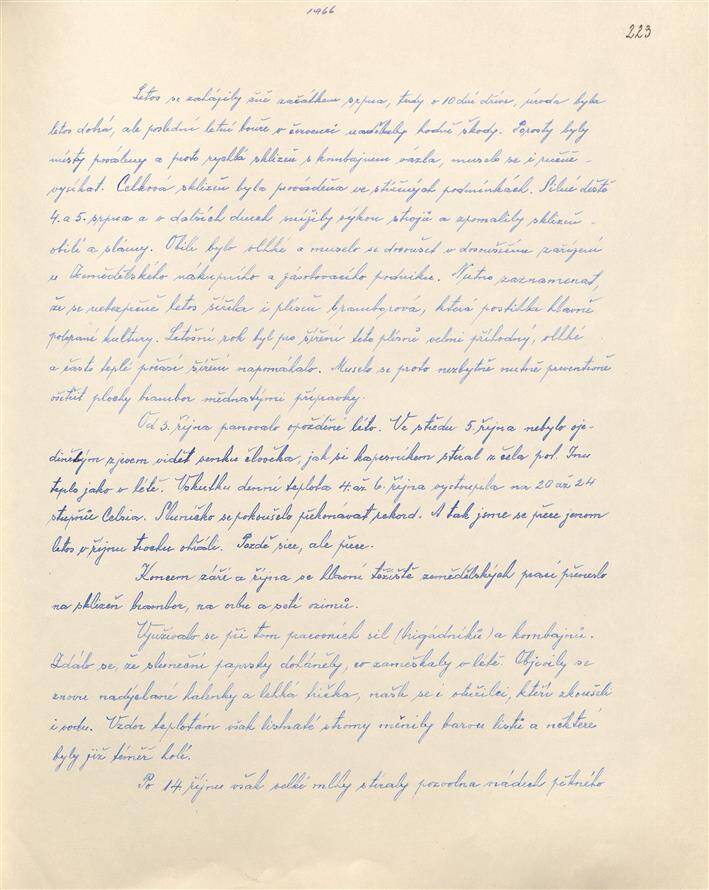 1966
223
Letos se zahájily žně začátkem srpna, tedy o 10 dní dříve, úroda byla
letos dobrá, ale poslední letní bouře v červenci nadělaly hodně škody. Porosty byly
místy pováleny a proto rychlá sklizeň s kombajnem vázla, muselo se i ručně
vysíkat. Celková sklizeň byla prováděna ve stížených podmínkách. Silné deště
4. a 5. srpna a v dalších dnech snížily výkon strojů a zpomalily sklizeň
obilí a slámy. Obilí bylo vlhké a muselo se dosoušet v dosoušecím zařízení
u Zemědělského nákupního a zásobovacího podniku. Nutno zaznamenat,
že se nebezpečně letos šířila i plíseň bramborová, která postihla hlavně
polorané kultury. Letošní rok byl pro šíření této plísně velmi příhodný, vlhké
a často teplé počasí šíření napomáhalo. Muselo se proto nezbytně nutně preventivně
ošetřit plochy brambor mědnatými přípravky.
Od 3. října panovalo opožděné léto. Ve středu 5. října nebylo oje-
dinělým zjevem vidět semka člověka, jak si kapesníkem stíral z čela pot. Inu
teplo jako v létě. Vskutku denní teplota 4. až 6. října vystoupila na 20 až 24
stupňů Celsia. Sluníčko se pokoušelo překonávat rekord. A tak jsme se přece jenom
letos v říjnu trochu ohřáli. Pozdě sice, ale přece.
Koncem září a října se hlavní těžiště zemědělských prací přeneslo
na sklizeň brambor, na orbu a setí ozimů.
Využívalo se při tom pracovních sil (brigádníků) a kombajnů.
Zdálo se, že sluneční paprsky doháněly, co zameškaly v létě. Objevily se
znovu nadýchané halenky a lehká trička, našli se i otužilci, kteří zkoušeli
i vodu. Vzdor teplotám však listnaté stromy měnily barvu listů a některé
byly již téměř holé.
Po 14. říjnu však velké mlhy stíraly pozvolna nádech pěkného